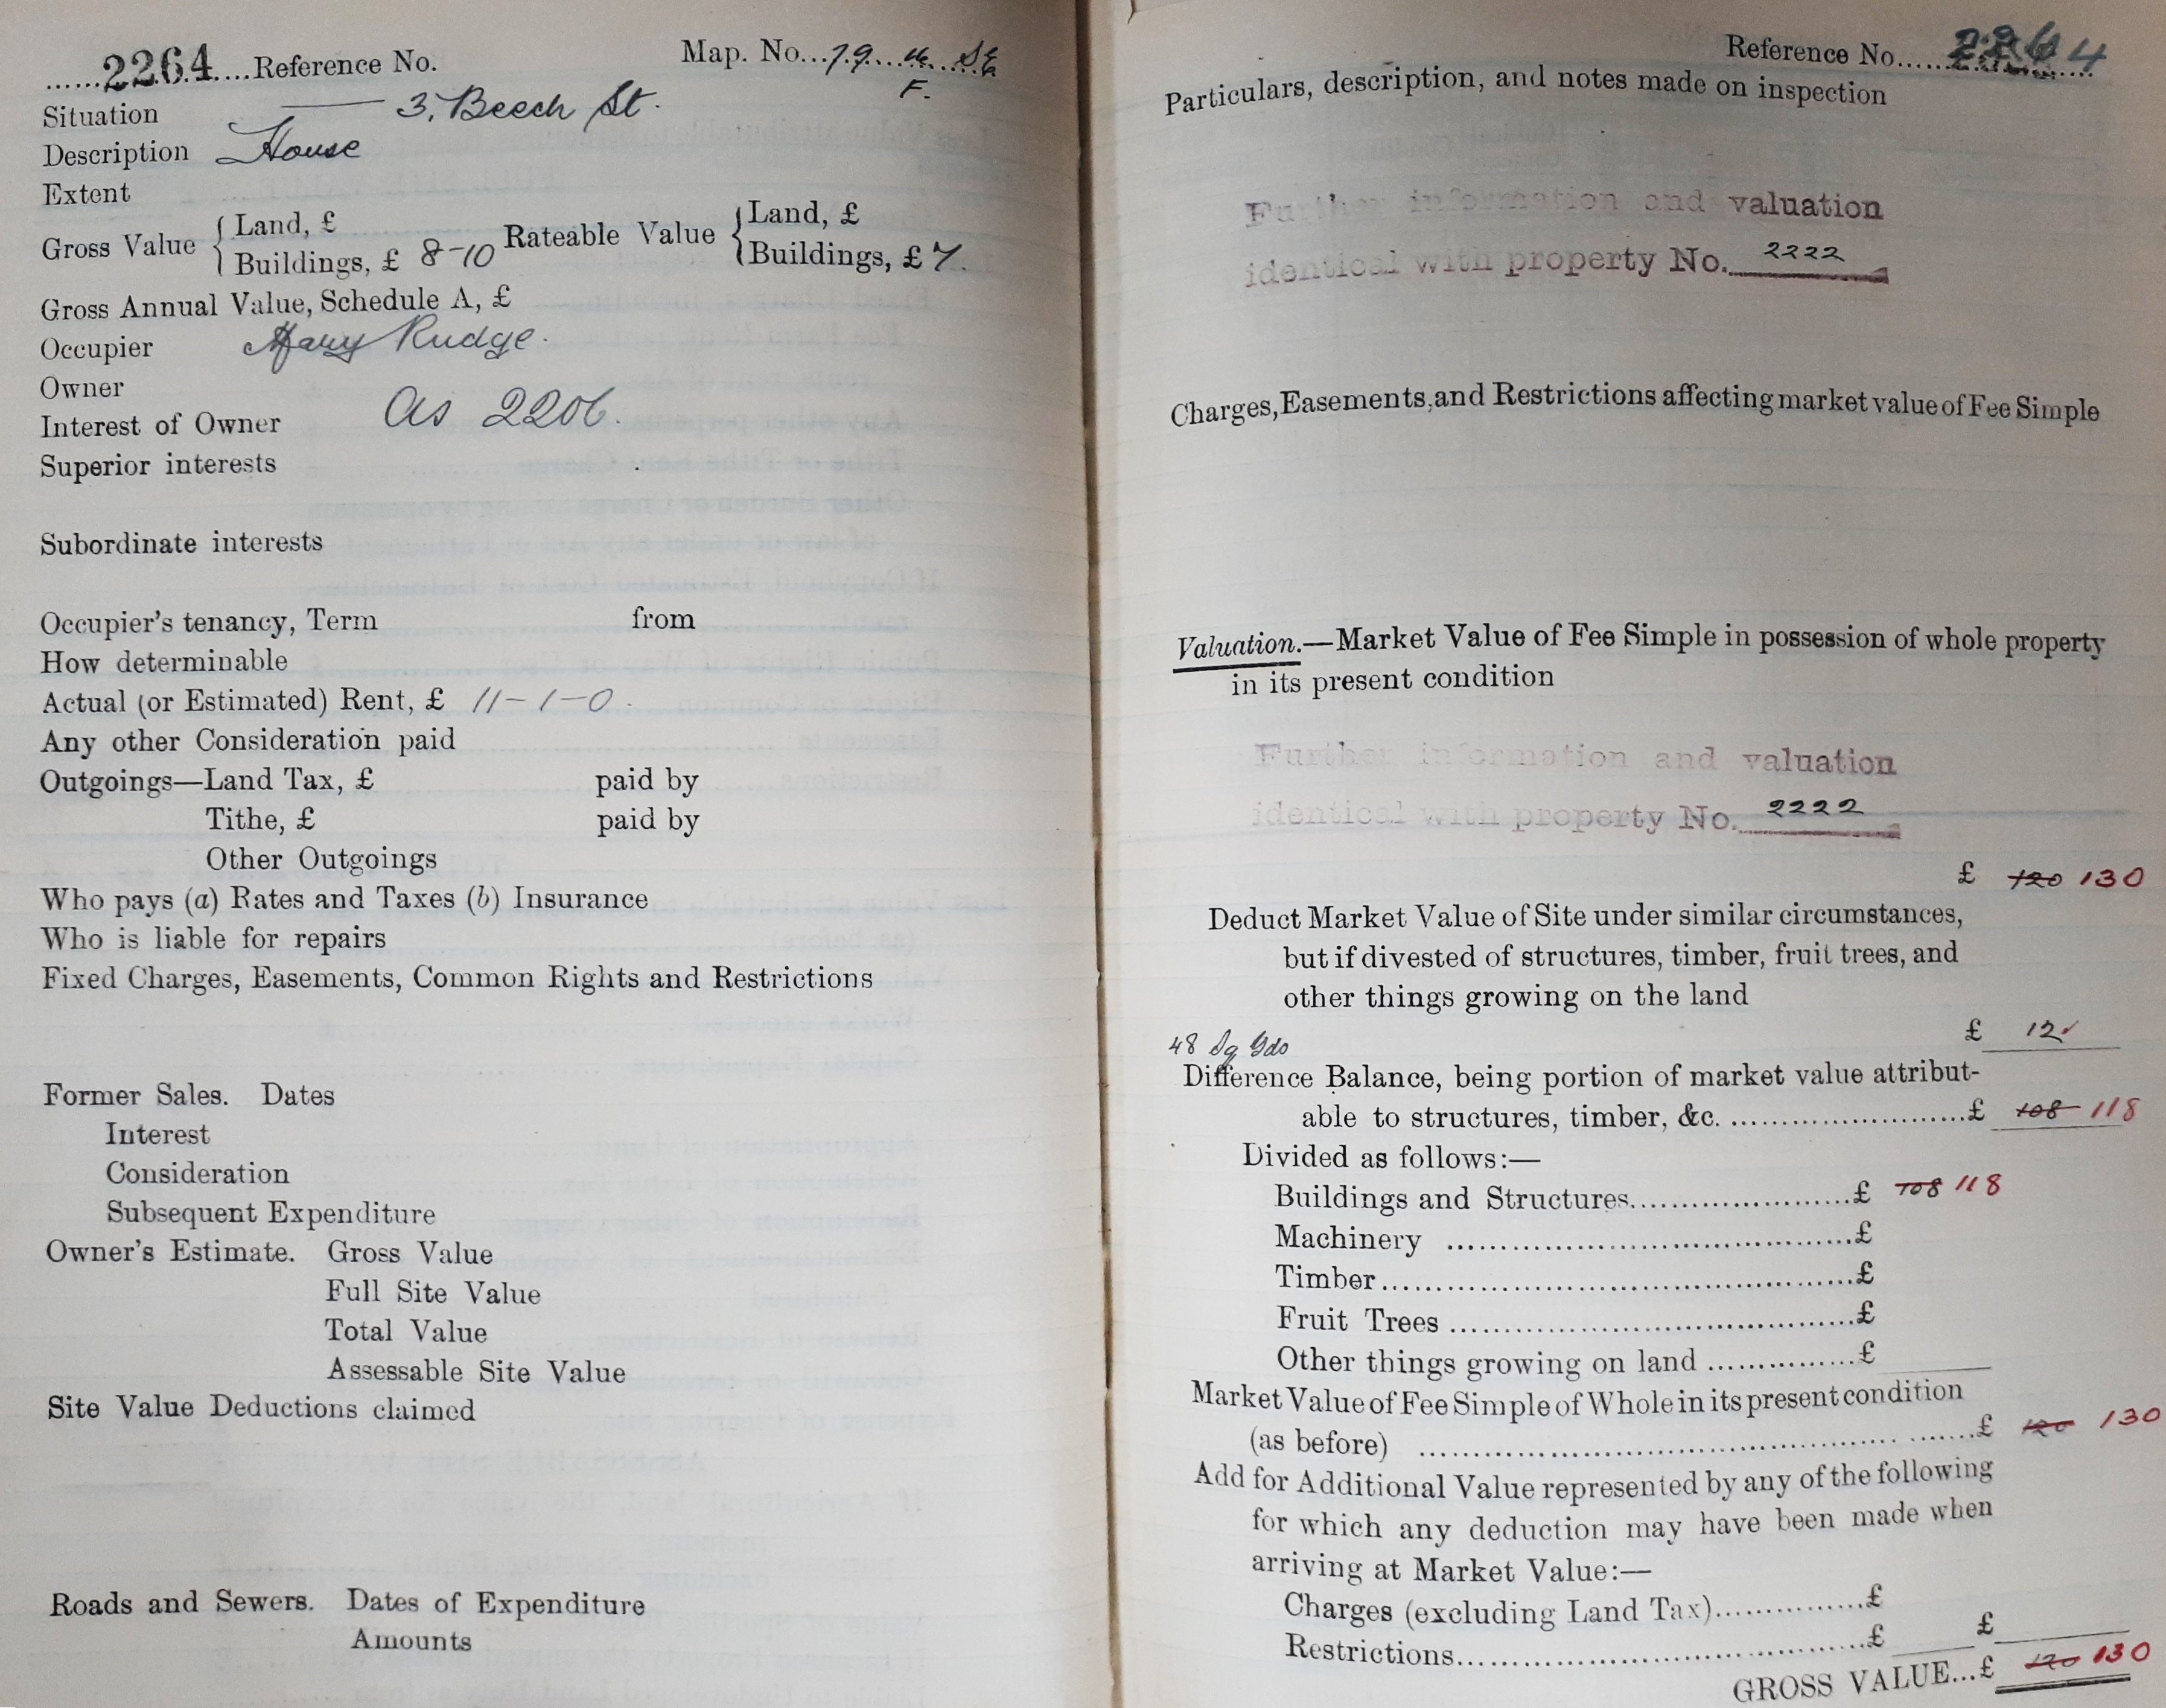 2264 Reference No. Map. No. 79 SE
F.
Situation 3, Beech St.
Description House
Extent
Gross Value { Land, £ Rateable Value { Land, £
Buildings, £ 8-10 Buildings, £ 7.
Gross Annual Value, Schedule A, £
Occupier Mary Rudge.
Owner
Interest of Owner As 2206.
Superior interests
Subordinate interests
Occupier's tenancy, Term from
How determinable
Actual (or Estimated) Rent, £ 11-1-0.
Any other Consideration paid
Outgoings—Land Tax, £ paid by
Tithe, £ paid by
Other Outgoings
Who pays (a) Rates and Taxes (b) Insurance
Who is liable for repairs
Fixed Charges, Easements, Common Rights and Restrictions
Former Sales. Dates
Interest
Consideration
Subsequent Expenditure
Owner's Estimate. Gross Value
Full Site Value
Total Value
Assessable Site Value
Site Value Deductions claimed
Roads and Sewers. Dates of Expenditure
Amounts
Reference No. 2264
Particulars, description, and notes made on inspection
Further information and valuation
identical with property No. 2222
Charges, Easements, and Restrictions affecting market value of Fee Simple
Valuation.—Market Value of Fee Simple in possession of whole property
in its present condition
Further information and valuation
identical with property No. 2222
£ 120 130
Deduct Market Value of Site under similar circumstances,
but if divested of structures, timber, fruit trees, and
other things growing on the land
£ 12
48 Sq Yds
Difference Balance, being portion of market value attribut-
able to structures, timber, &c. £ 108 118
Divided as follows:—
Buildings and Structures £ 108 118
Machinery £
Timber £
Fruit Trees £
Other things growing on land £
Market Value of Fee Simple of Whole in its present condition
(as before) £ 120 130
Add for Additional Value represented by any of the following
for which any deduction may have been made when
arriving at Market Value:—
Charges (excluding Land Tax) £
Restrictions £ £
GROSS VALUE...£ 120 130